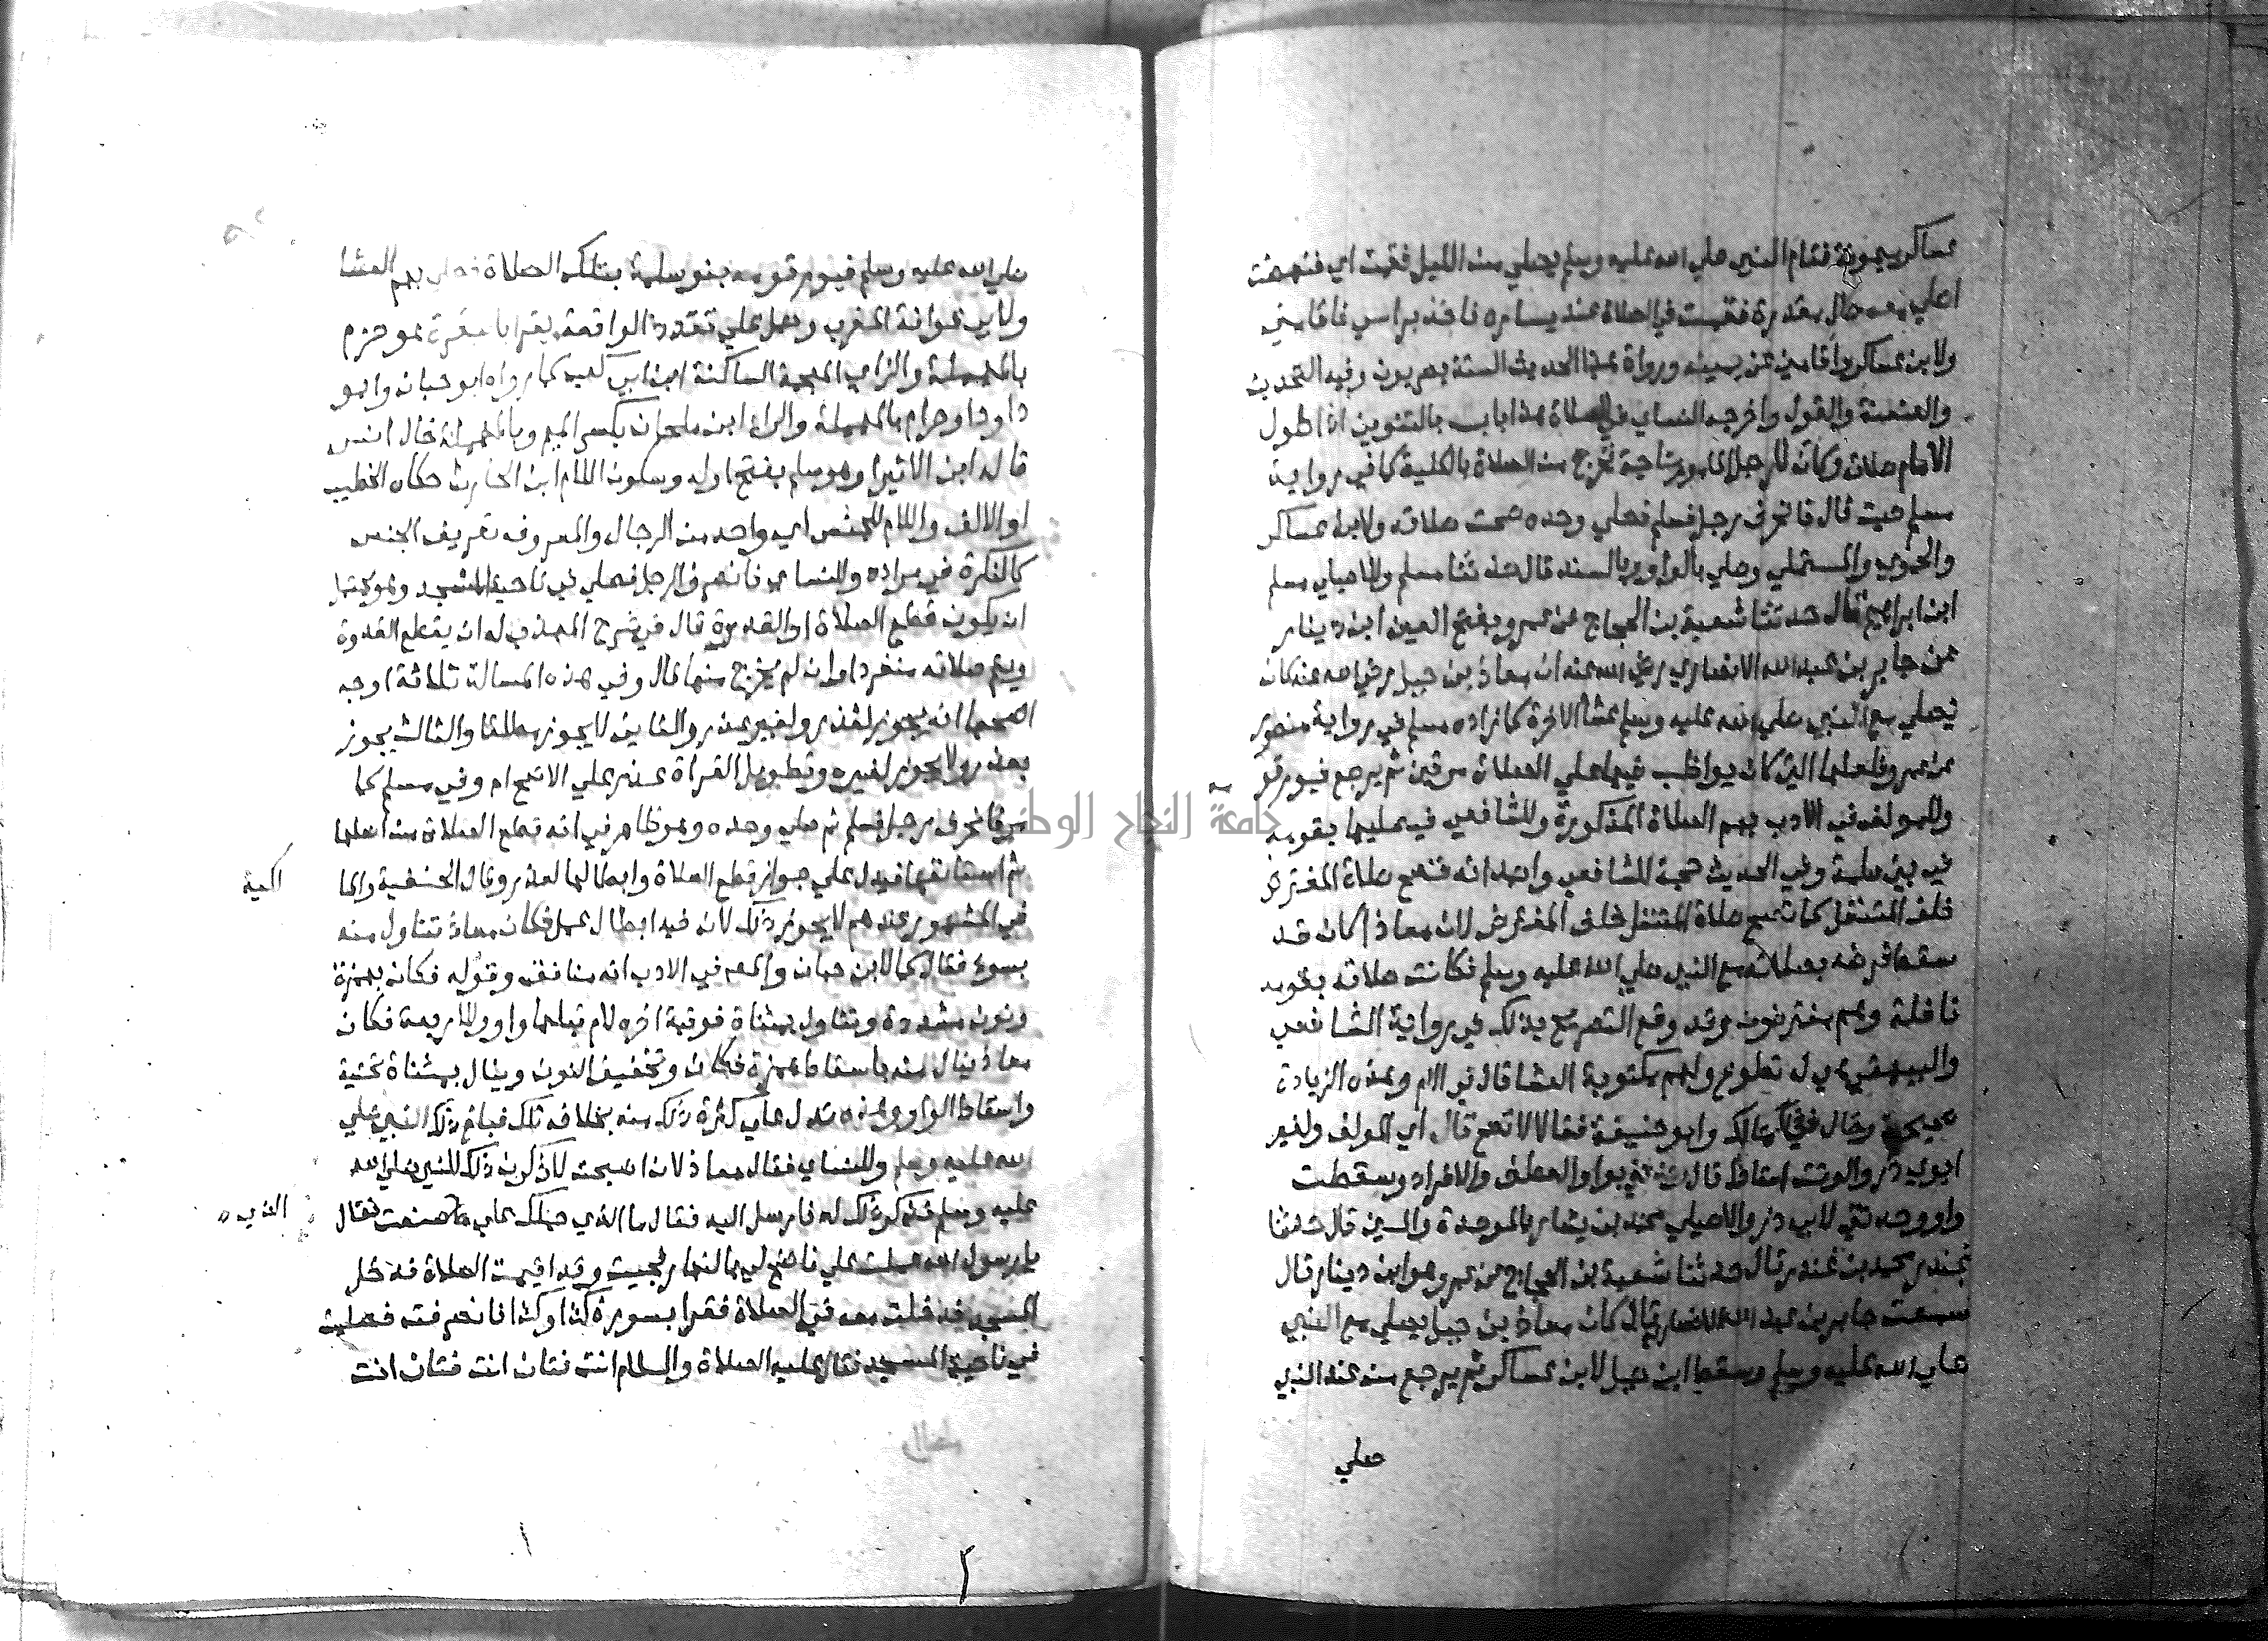 عساكر ميمونة فقام النبي صلي الله عليه وسلم يصلي من الليل فقمت اي فنهضت
اصلي معه حال مقدرة فقمت في الصلاة عند يساره فاخذ براسي فاقامني
ولابن عساكر واقامني عن يمينه ورواة هذا الحديث الستة بصريون وفيه التحديث
والعنعنة والقول واخرجه النساي في الصلاة هذا باب بالتنوين اذا طول
الامام صلاته وكان للرجل الماموم حاجة فخرج من الصلاة بالكلية كما في رواية
مسلم حيث قال فانحرف رجل فسلم فصلي وحده صحت صلاته ولابن عساكر
والحموي والمستملي وصلي بالواو وبالسند قال حدثنا مسلم وللاصيلي مسلم
ابن ابراهيم قال حدثنا شعبة بن الحجاج عن عمرو بفتح العين ابن دينار
عن جابر بن عبد الله الانصاري رضي الله عنه ان معاذ بن جبل رضي الله عنه كان
يصلي مع النبي صلي الله عليه وسلم عشا الاخرة كما زاده مسلم في رواية منصور
عن عمرو فلعلها التي كان يواظب فيها علي الصلاة مرتين ثم يرجع فيوم قو
وللمولف في الادب بهم الصلاة المذكورة وللشافعي فيصليها بقومه
في بني سلمة وفي الحديث حجة للشافعي واحمد انه تصح صلاة المفترض
خلف المتنفل كما تصح صلاة المتنفل خلف المفترض لان معاذا كان قد
سقط فرضه بصلاته مع النبي صلي الله عليه وسلم فكانت صلاته بقومه
نافلة وهم مفترضون وقد وقع التصريح بذلك في رواية الشافعي
والبيهقي هي له تطوع ولهم مكتوبة العشا قال في الام وهذه الزيادة
صحيحة وخالف في ذلك مالك وابو حنيفة فقالا لا تصح قال اي المولف ولغير
ابوي ذر والوقت اسقاط قال وحدثني بواو العطف والافراد وسقطت
واو وحدثني لابي ذر والاصيلي محمد بن بشار بالموحدة والسين قال حدثنا
غندر محمد بن غندر قال حدثنا شعبة بن الحجاج عن عمرو هو ابن دينار قال
سمعت جابر بن عبد الله الانصاري قال كان معاذ بن جبل يصلي مع النبي
صلي الله عليه وسلم وسقط ابن جبل لابن عساكر ثم يرجع من عند النبي
صلي
صلي الله عليه وسلم فيوم قومه بنو سلمة بتلك الصلاة فصلي بهم العشا
ولابي عوانة المغرب وحمل علي تعدد الواقعة
بالمهملة والزاي المعجمة الساكنة ابن ابي كعب كما رواه ابو حبان وابو
داود او حرام بالمهملة والرا ابن ملحان بكسر الميم وبالمهملة خال انس
قاله ابن الاثير او هو سلم بفتح اوله وسكون اللام ابن الحارث حكاه الخطيب
او الالف واللام للجنس اي واحد من الرجال والمعروف تعريف الجنس
كالنكرة في مراده وللنساي فانصرف الرجل فصلي في ناحية المسجد وهو يحتمل
ان يكون قطع الصلاة او القدوة قال في شرح المهذب له ان يقطع القدوة
ويتم صلاته منفردا وان لم يخرج منها قال وفي هذه المسالة ثلاثة اوجه
اصحها انه يجوز لعذر ولغير عذر والثاني لا يجوز مطلقا والثالث يجوز
بعذر ولا يجوز لغيره وتطويل القراة عذر علي الاصح ام وفي مسلم كما
مر فانحرف رجل فسلم ثم صلي وحده وهو ظاهر في انه قطع الصلاة من اصلها
ثم استانفها فيدل علي جواز قطع الصلاة وابطالها لعذر وقال الحنفية والما
لكية
في المشهور عندهم لا يجوز ذلك لان فيه ابطال عمل فكان معاذ تناول منه
بسوء فقال كما لابن حبان والمص في الادب انه منافق وقوله فكان بهمزة
ونون مشددة وتناول بمثناة فوقية اخره لام قبلها واو وللاربعة فكان
معاذ ينال منه باسقاط همزة فكان وتخفيف النون وينال بمثناة تحتية
واسقاط الواو وهذه تدل علي كثرة ذلك منه بخلاف تلك فبلغ ذلك النبي صلي
الله عليه وسلم وللنساي فقال معاذ لان اصبحت لاذكرن ذلك للنبي صلي الله
عليه وسلم فذكر ذلك له فارسل اليه فقال ما الذي حملك علي ما صنعت فقال
الذي
يا رسول الله عملت علي ناضح لي بالنهار فجيت وقد اقيمت الصلاة فدخلت
المسجد فدخلت معه في الصلاة فقرا بسورة كذا وكذا فانصرفت فصليت
في ناحية المسجد فقال عليه الصلاة والسلام انت فتان انت فتان انت
جامعة النجاح الوطنية
٢